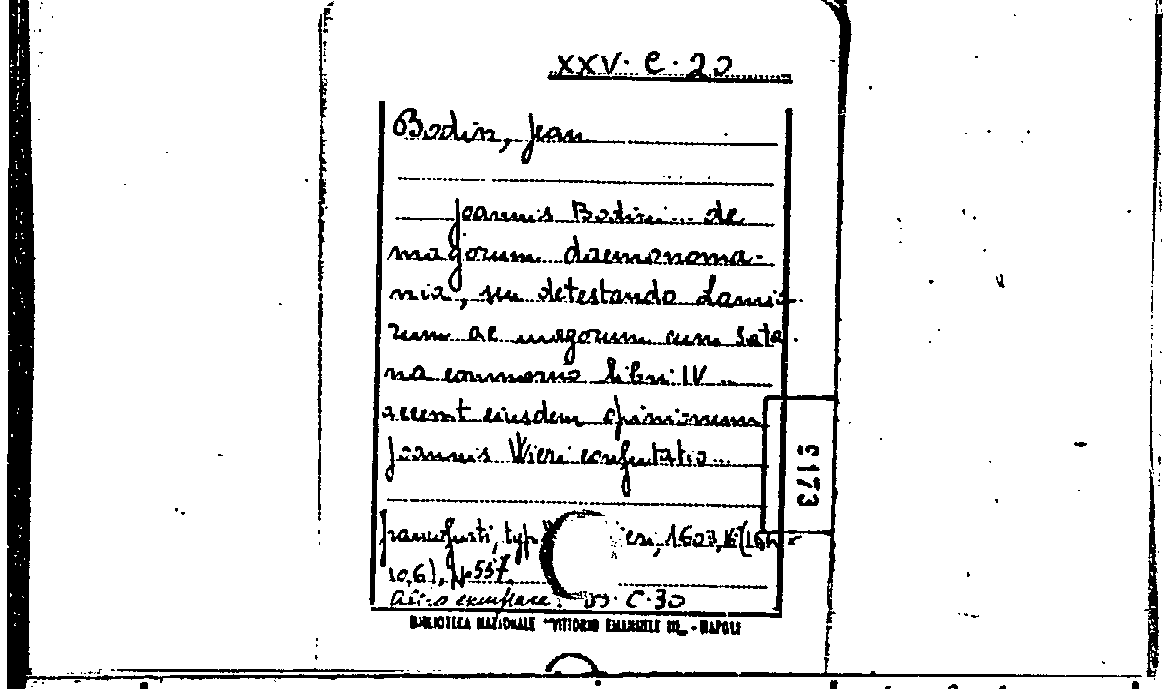 XXV. C. 20
Bodin, Jean
Joannis Bodini... de
magorum daemonoma-
nia, seu detestando Lamia-
rum ac magorum cum Sata-
na commercio libri IV...
accessit eiusdem opinionum
Joannis Wieri confutatio...
Francofurti, typ 1603, 16
10,6), p. 557.
Altro exemplare: C. 30
BIBLIOTECA NAZIONALE "VITTORIO EMANUELE III" - NAPOLI
C 173